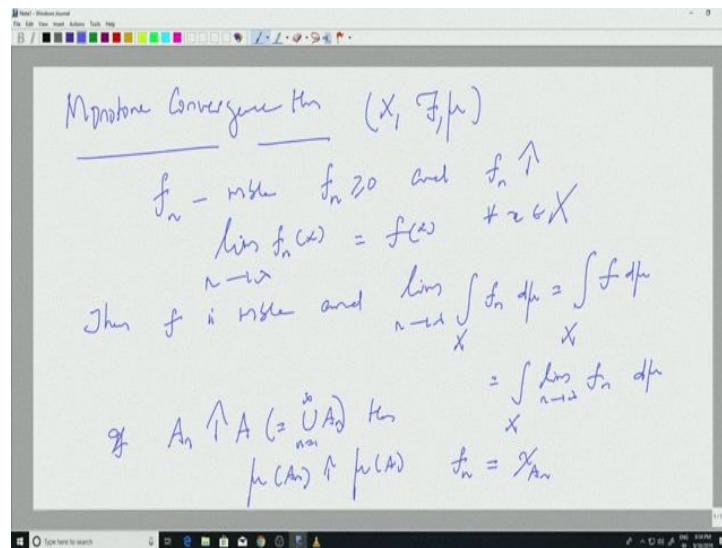 Note1 - Windows Journal
File Edit View Insert Actions Tools Help
Monotone Convergence thm (X, ℱ, μ)
fₙ - mble fₙ ≥ 0 and fₙ ↑
lim_{n→∞} fₙ(x) = f(x) ∀ x ∈ X
Then f is mble and lim_{n→∞} ∫_X fₙ dμ = ∫_X f dμ
= ∫_X lim_{n→∞} fₙ dμ
If Aₙ ↑ A (= ⋃_{n=1}^∞ Aₙ) then
μ(Aₙ) ↑ μ(A) fₙ = χ_{Aₙ}
Type here to search